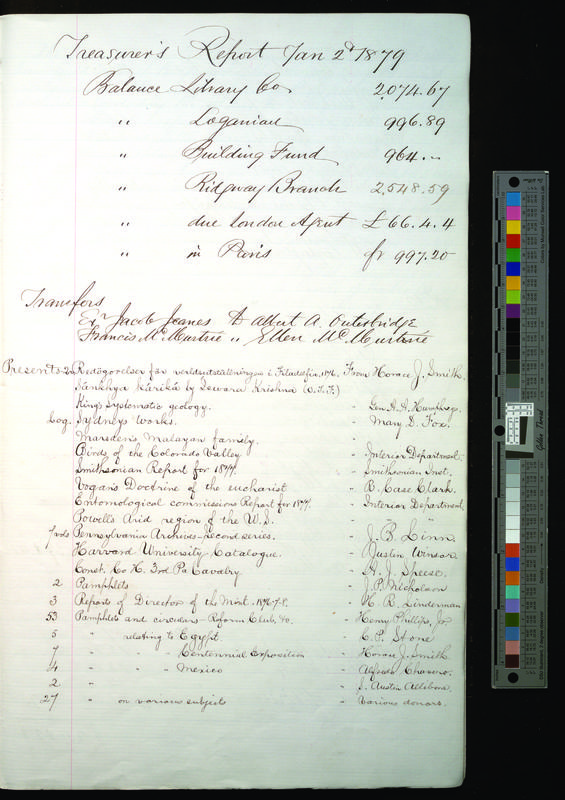 Treasurer's Report Jan 2d 1879
Balance Library Co 2,074.67
" Loganian 996.89
" Building Fund 964.--
" Ridgway Branch 2,548.59
" due London Agent £66.4.4
" in Paris fr 997.20
Transfers
Exr Jacob Jeanes to Albert A. Outerbridge
Francis McMurtrie " Ellen McMurtrie
Presents Redogörelser för verldsutställningen i Filadelfia, 1876. From Horace J. Smith.
Sánkhya Káriká by Iswara Krishna
King's Systematic geology. - Gen. A. A. Humphreys.
Log. Sydney's Works. - Mary D. Fox.
Marsden's Malayan family.
Birds of the Colorado Valley - Interior Department.
Smithsonian Report for 1877. - Smithsonian Inst.
Vogan's Doctrine of the eucharist - B. Case Clark.
Entomological commissions Report for 1877. - Interior Department.
Powell's Arid region of the U.S. - "
7 vols Pennsylvania Archives - Second series. - J. B. Linn.
Harvard University Catalogue. - Justin Winsor
Const. Co H. 3rd Pa Cavalry - H. J. Speese.
2 Pamphlets - J. P. Nicholson
3 Reports of Director of the Mint. 1876-7-8. - H. R. Linderman
53 Pamphlets and circulars - Reform Club, &c. - Henry Phillips, Jr
5 " relating to Egypt - C. P. Stone
7 " " " Centennial Exposition - Horace J. Smith
4 " " " Mexico - Alfredo Chavero.
2 " - S. Austin Allibone.
27 " on various subjects - Various donors.